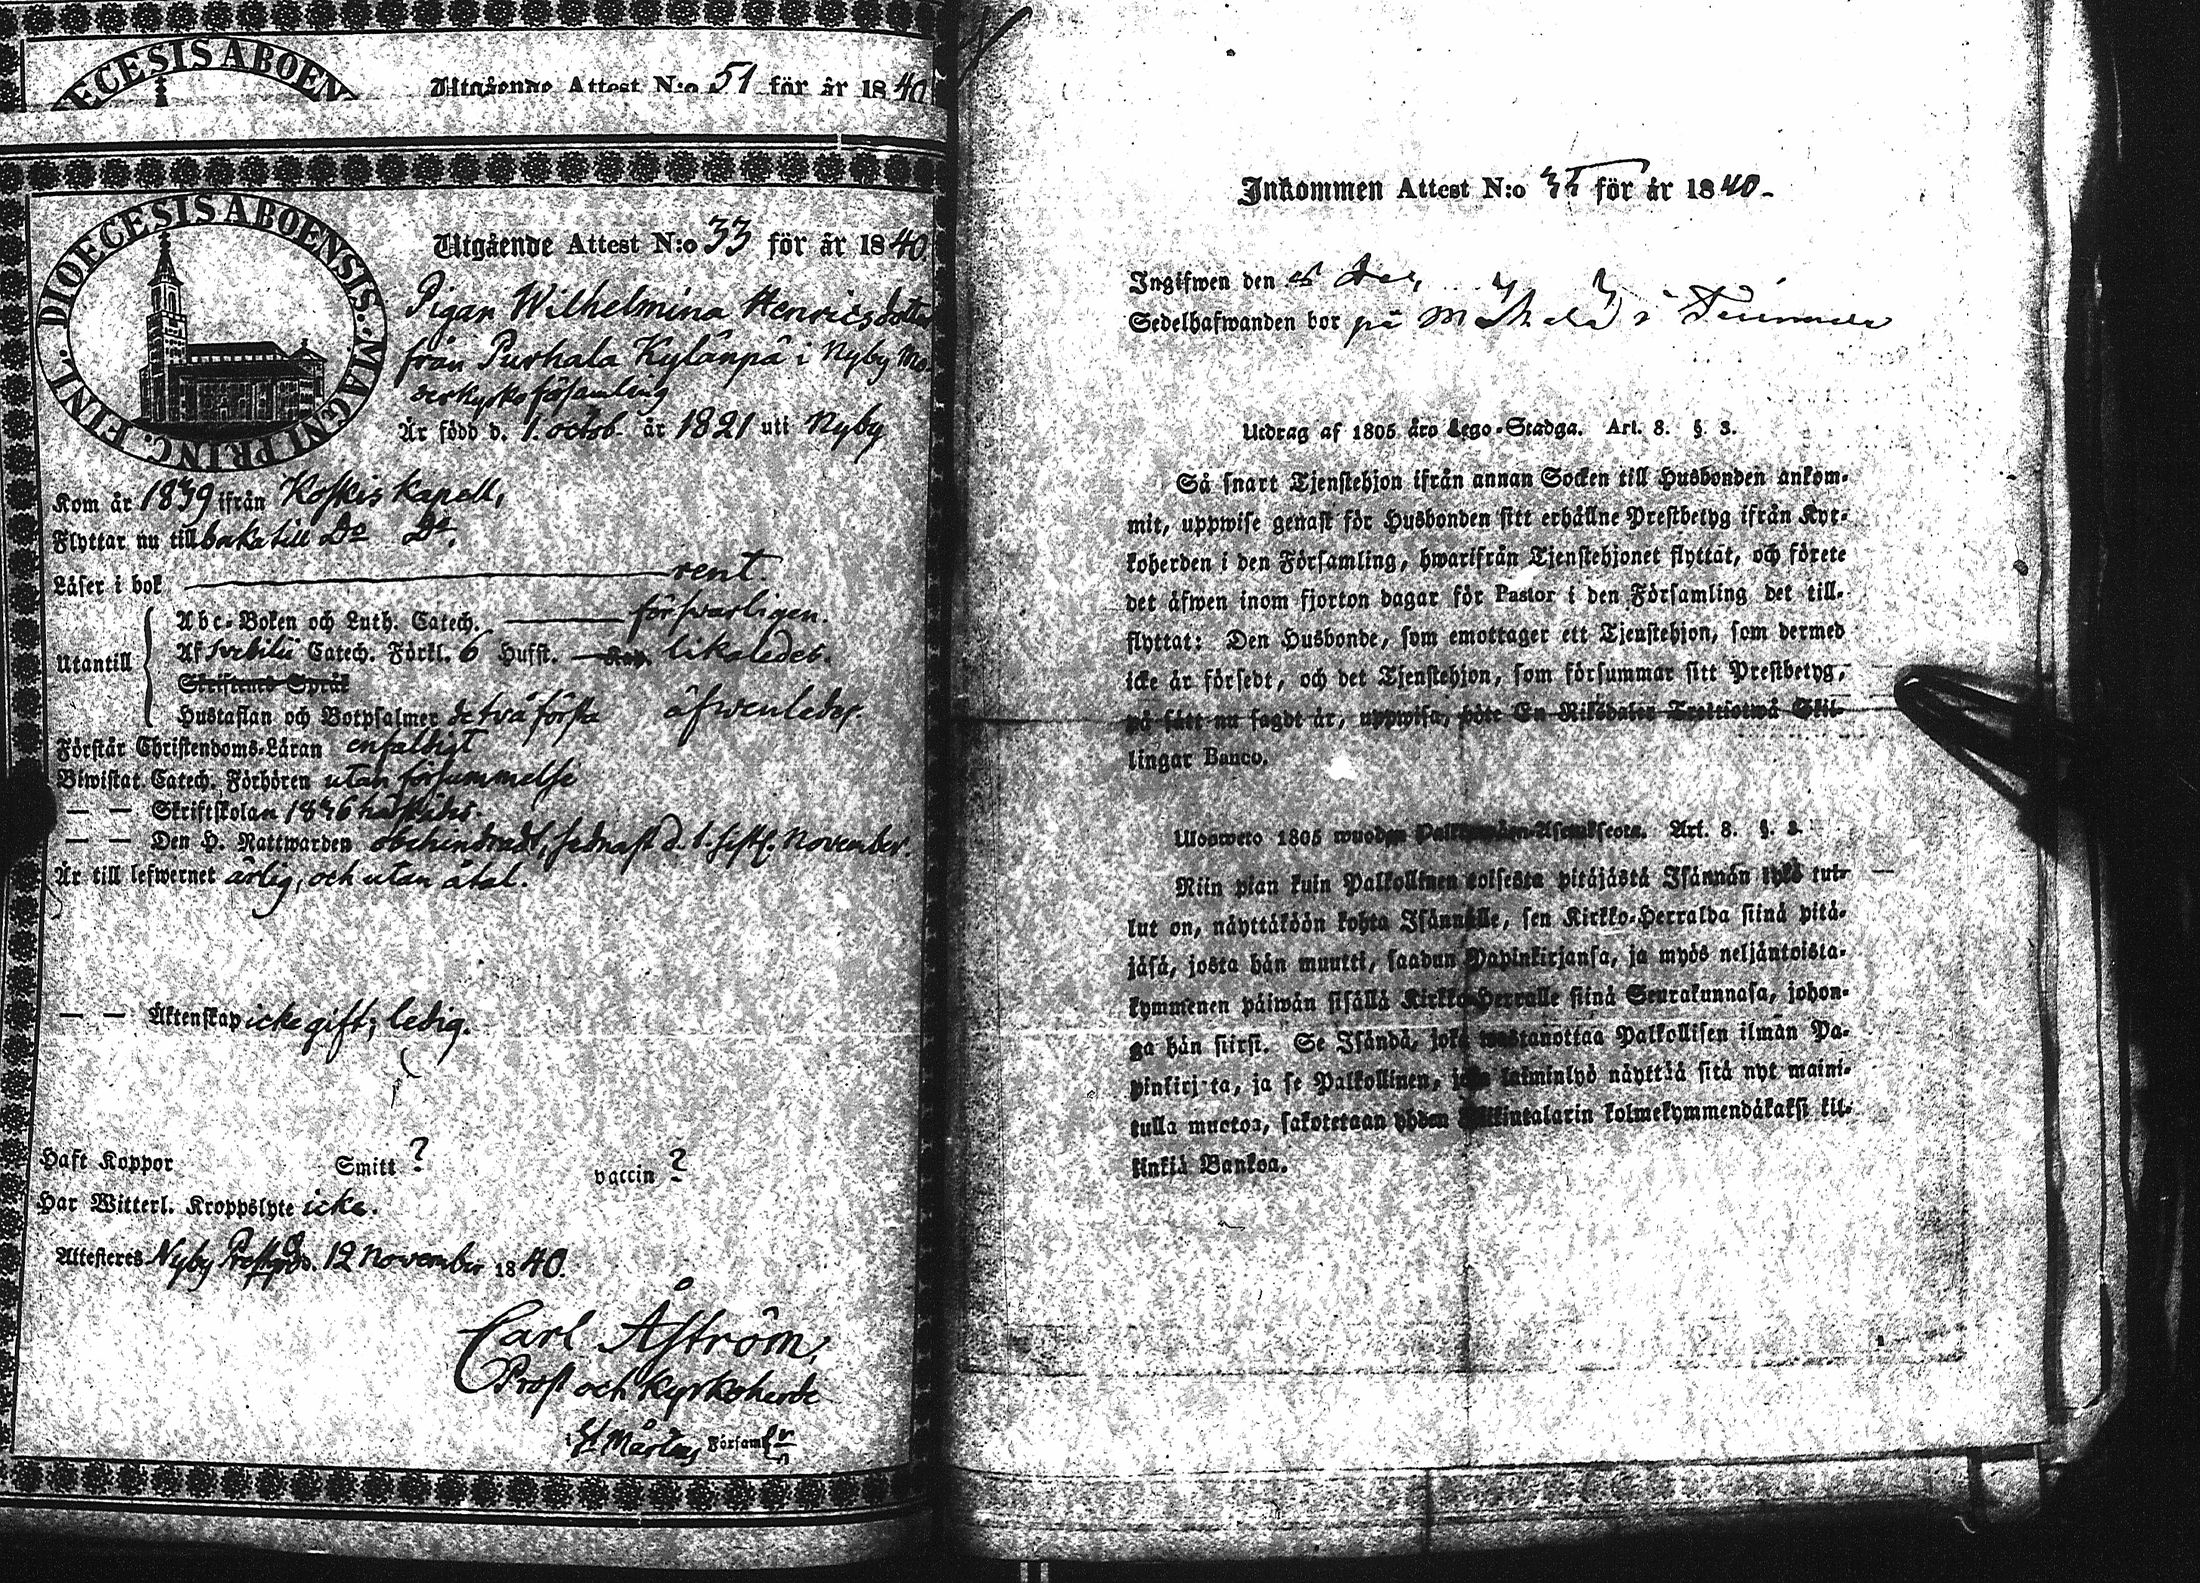 DIOECESIS ABOEN
Utgående Attest N:o 51 för år 1840
DIOECESIS ABOENSIS. MAGNI PRINC. FINL.
Utgående Attest N:o 33 för år 1840
Pigan Wilhelmina Henricsdotter
från Purhala Kylänpä i Nyby Mo-
derkyrko församling
Är född d. 1. octob. år 1821 uti Nyby
Kom år 1839 ifrån Koskis Kapell,
Flyttar nu tillbaka till Do Do.
Läser i bok rent.
Utantill
Abc-Boken och Luth. Catech. förswarligen.
Af Svebilii Catech. Förkl. 6 Hufst. likaledes.
Skriftenes Språk
Hustaflan och Botpsalmer de två första äfwenledes.
Förstår Christendoms-Läran enfaldigt
Biwistat Catech. Förhören utan försummelse
— — Skriftskolan 1836
— — Den H. Nattwarden obehindradt, sednast d. 1. November.
Är till lefwernet ärlig, och utan åtal.
— — Äktenskap icke gift; ledig.
Haft Koppor Smitt ? vaccin ?
Har Witterl. Kroppslyte icke.
Attesteres Nyby Prestgd d. 12 November 1840.
Carl Åström,
Prost och Kyrkoherde
i St Mårtens Församl
Inkommen Attest N:o för år 1840-
Ingifwen den
Sedelhafwanden bor på i
Utdrag af 1805 års Lego-Stadga. Art. 8. §. 3.
Så snart Tjenstehjon ifrån annan Socken till Husbonden ankom-
mit, uppwise genast för Husbonden sitt erhållne Prestbetyg ifrån Kyr-
koherden i den Församling, hwarifrån Tjenstehjonet flyttat, och förete
det äfwen inom fjorton dagar för Pastor i den Församling det till-
flyttat: Den Husbonde, som emottager ett Tjenstehjon, som dermed
icke är försedt, och det Tjenstehjon, som försummar sitt Prestbetyg,
på sätt nu sagdt är, uppwisa, böte En Riksdaler Trettiotwå Skil-
lingar Banco.
Ulosweto 1805 wuoden Palkkawäen-Asetuksesta. Art. 8. §. 3.
Niin pian kuin Palkollinen toisesta pitäjästä Isännän tykö tul-
lut on, näyttäköön kohta Isännälle, sen Kirkko-Herralda siinä pitä-
jäsä, josta hän muutti, saadun Papinkirjansa, ja myös neljäntoista-
kymmenen päiwän sisällä Kirkko-Herralle siinä Seurakunnasa, johon-
ga hän siirsi. Se Isändä, joka wastanottaa Palkollisen ilman Pa-
pinkirjata, ja se Palkollinen, joka laiminlyö näyttää sitä nyt maini-
tulla muotoa, sakotetaan yhden Rikintalarin kolmekymmendäkaksi kil-
linkiä Bankoa.